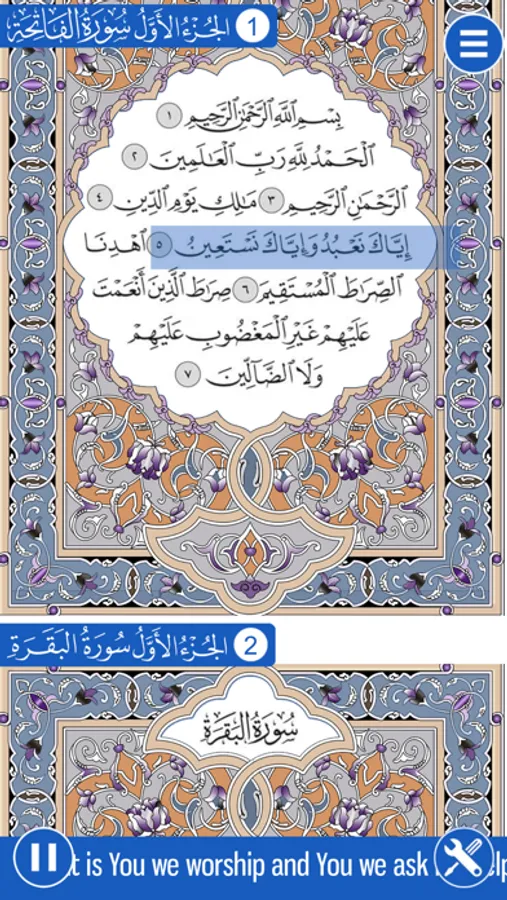 الجُزْءُ الأَوَّلُ سُورَةُ الفَاتِحَةِ 1
بِسْمِ ٱللَّهِ ٱلرَّحْمَٰنِ ٱلرَّحِيمِ ١
ٱلْحَمْدُ لِلَّهِ رَبِّ ٱلْعَٰلَمِينَ ٢
ٱلرَّحْمَٰنِ ٱلرَّحِيمِ ٣ مَٰلِكِ يَوْمِ ٱلدِّينِ ٤
إِيَّاكَ نَعْبُدُ وَإِيَّاكَ نَسْتَعِينُ ٥ ٱهْدِنَا
ٱلصِّرَٰطَ ٱلْمُسْتَقِيمَ ٦ صِرَٰطَ ٱلَّذِينَ أَنْعَمْتَ
عَلَيْهِمْ غَيْرِ ٱلْمَغْضُوبِ عَلَيْهِمْ
وَلَا ٱلضَّآلِّينَ ٧
الجُزْءُ الأَوَّلُ سُورَةُ البَقَرَةِ 2
سُورَةُ البَقَرَةِ
t is You we worship and You we ask